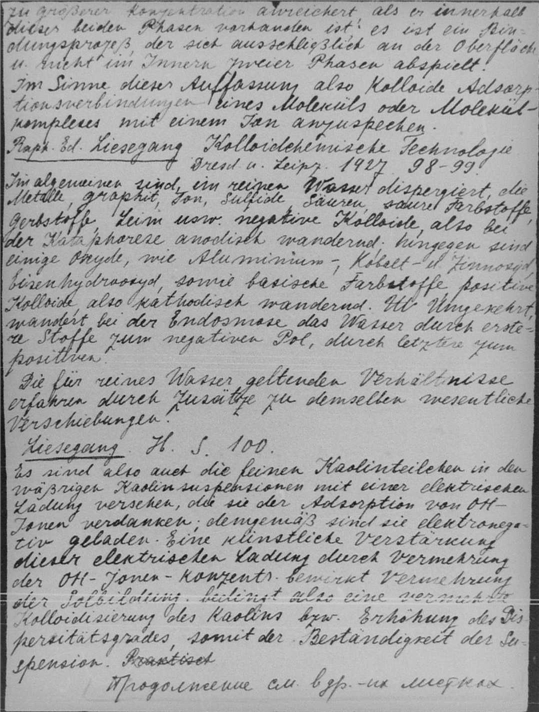 zu größerer Konzentration anreichert als er innerhalb
dieser beiden Phasen vorhanden ist es ist ein
dungsprozeß, der sich ausschließlich an der Oberfläche
u. nicht im Innern zweier Phasen abspielt.
Im Sinne dieser Auffassung also Kolloide Adsorp-
tionsverbindungen eines Moleküls oder Molekül-
komplexes mit einem Ion anzuspechen.
Raph. Ed. Liesegang Kolloidchemische Technologie
Dresd u. Leipz. 1927 98-99.
Im algemeinen sind, im reinen Wasser dispergiert, die
Metalle, graphit, Ton, Sulfide, Säuren, saure Farbstoffe,
Gerbstoffe, Leim usw. negative Kolloide, also bei
der Kataphorese anodisch wandernd. hingegen sind
einige Oxyde, wie Aluminium-, Kobalt- u. Zinnoxyd,
Eisenhydroxyd, sowie basische Farbstoffe positive
Kolloide also kathodisch wandernd. Umgekehrt,
wandert bei der Endosmose das Wasser durch erste-
re Stoffe zum negativen Pol, durch letztere zum
positiven.
Die für reines Wasser geltenden Verhältnisse
erfahren durch Zusätze zu demselben wesentliche
Verschiebungen.
Liesegang. H. S. 100.
Es sind also auch die feinen Kaolinteilchen in den
wäßrigen Kaolinsuspensionen mit einer elektrischen
Ladung versehen, die sie der Adsorption von OH-
Jonen verdanken; demgemäß sind sie elektronega-
tiv geladen. Eine künstliche Verstärkung
dieser elektrischen Ladung durch Vermehrung
der OH-Jonen-Konzentr. bewirkt Vermehrung
der Solbildung, bedingt also eine vermehrte
Kolloidisierung des Kaolins bzw. Erhöhung des Dis-
persitätsgrades, somit der Beständigkeit der Su-
spension. Praktisch
Продолжение см. в др-их листках.